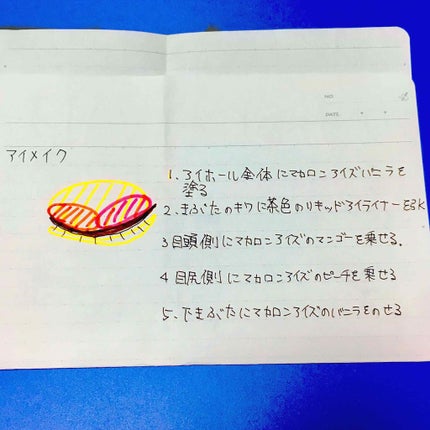 NO.
DATE
アイメイク
1、アイホール全体にマカロンアイズバニラを
塗る
2、まぶたのキワに茶色のリキッドアイライナーを引く
3 目頭側にマカロンアイズのマンゴーを乗せる.
4 目尻側にマカロンアイズのピーチを乗せる
5、下まぶたにマカロンアイズのバニラをのせる